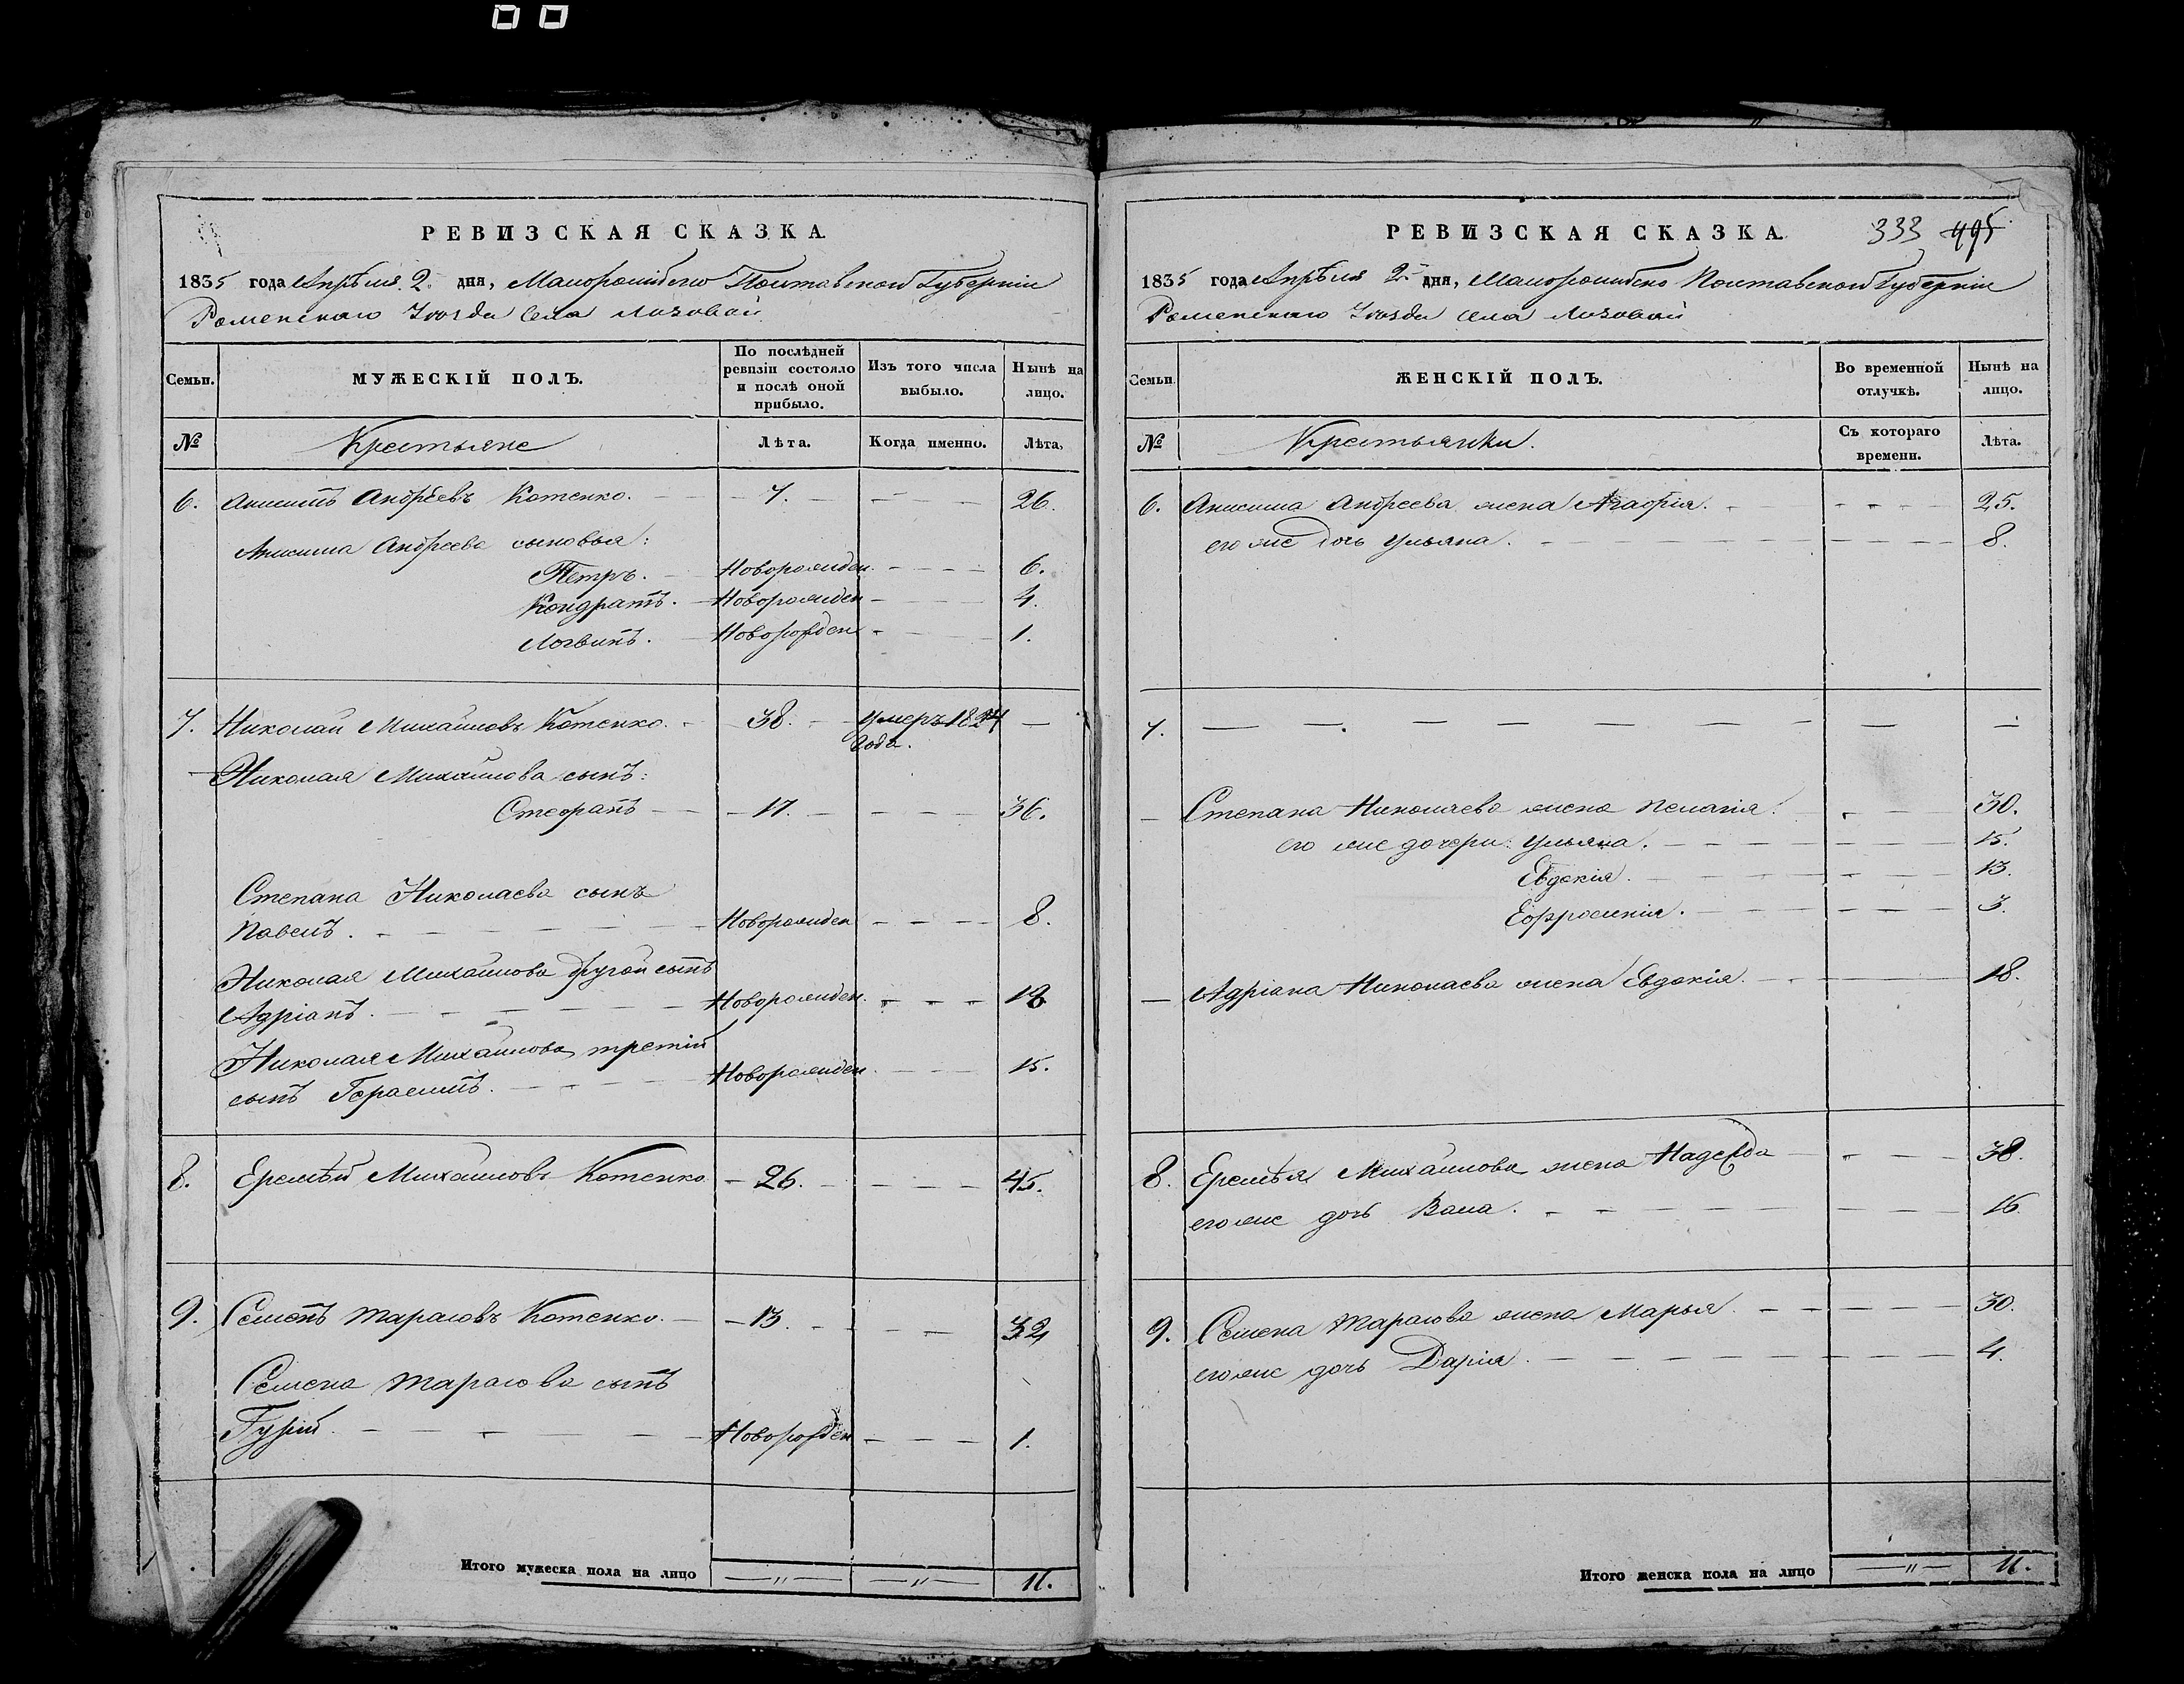 РЕВИЗСКАЯ СКАЗКА.
1835 года Апрѣля 2. дня, Малоросийско Полтавской Губернiи
Роменскаго Уѣзда села Лозовой
Семьи.
МУЖЕСКIЙ ПОЛЪ.
По послѣдней ревизiи состояло и послѣ оной прибыло.
Изъ того числа выбыло.
Нынѣ на лицо.
№
Крестьяне
Лѣта.
Когда именно.
Лѣта,
6. Анисимъ Андреевъ Котенко. 7. 26.
Анисима Андреева сыновья:
Петръ. Новорожден. 6.
Кондратъ. Новорожден 4.
Логвинъ. Новорожден 1.
7. Николай Михайловъ Котенко. 38. умеръ 1824
года.
Николая Михайлова сынъ:
Стефанъ 17. 36.
Степана Николаева сынъ
Павелъ. Новорожден 8.
Николая Михайлова другой сынъ
Адрiанъ. Новорожден.
Николая Михайлова третiй
сынъ Герасимъ. Новорожден. 15.
8. Еремѣй Михайловъ Котенко 26. 45.
9. Семенъ Тарасовъ Котенко. 13. 32
Семена Тарасова сынъ
Гурiй. Новорожден 1.
Итого мужеска пола на лицо — „ — — „ — 11.
РЕВИЗСКАЯ СКАЗКА. 333 495
1835 года Апрѣля 2. дня, Малоросийско Полтавской Губернiи
Роменскаго Уѣзда села Лозовой
Семьи
ЖЕНСКIЙ ПОЛЪ.
Во временной отлучкѣ.
Нынѣ на лицо.
№
Крестьянки.
Съ котораго времени.
Лѣта.
6. Анисима Андреева жена Агафiя. 25.
его же дочь Ульяна. 8.
7.
Степана Николаева жена Пелагiя. 30.
его же дочери: Ульяна. 15.
Евдокiя. 13.
Ефросинiя. 3.
Адрiана Николаева жена Евдокiя. 18.
8. Еремѣя Михайлова жена Надежда 38.
его же дочь Васа. 16
9. Семена Тарасова жена Марья. 30.
его же дочь Дарiя. 4.
Итого женска пола на лицо — „ — 11.